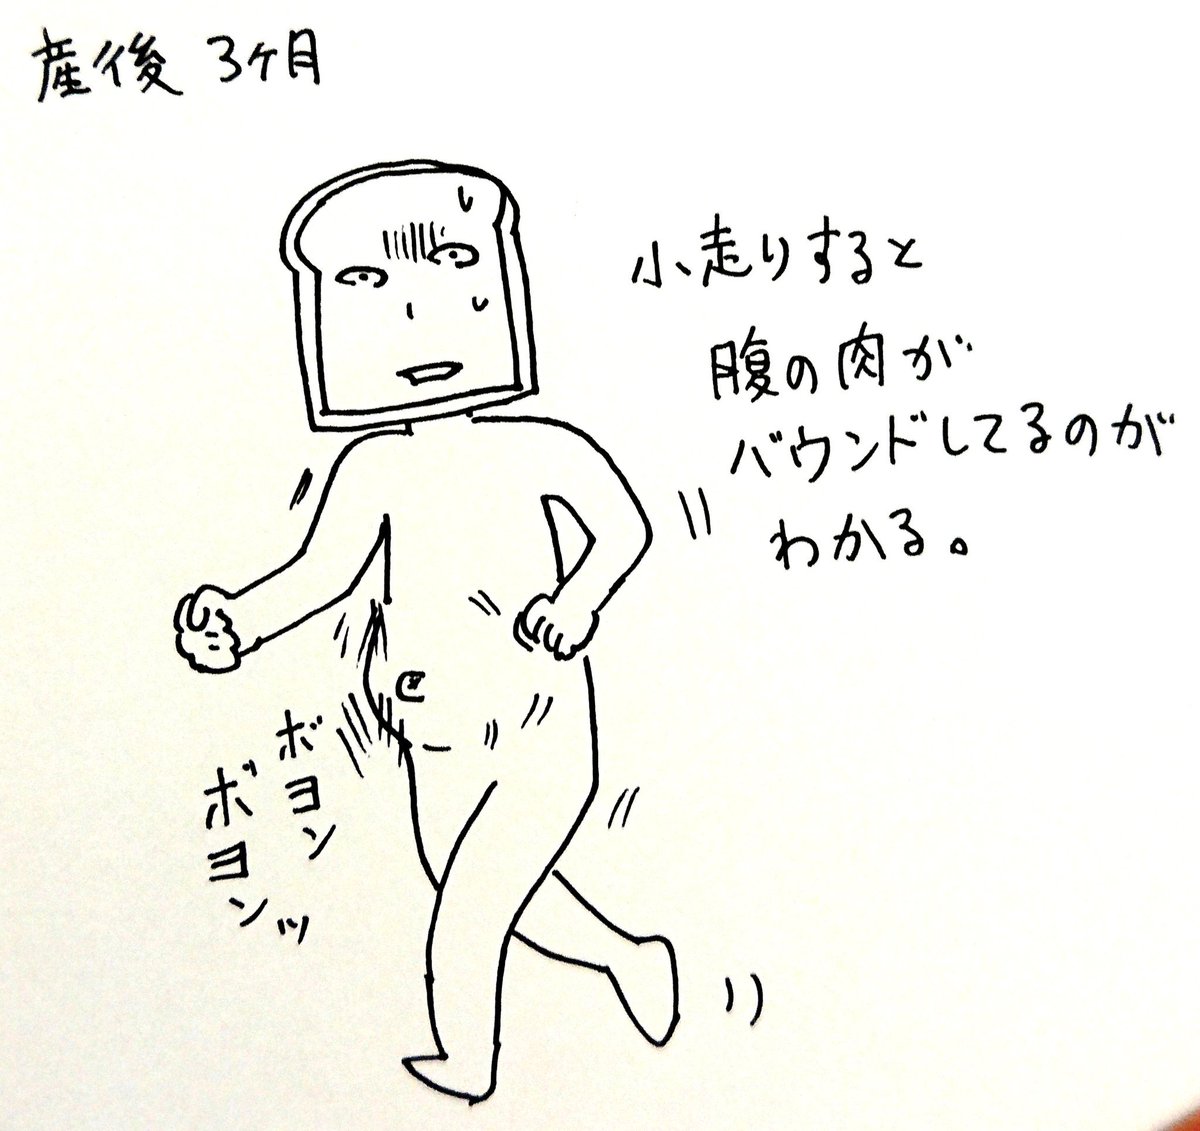 産後 3ヶ月
小走りすると
腹の肉が
バウンドしてるのが
わかる。
ボヨン
ボヨンッ